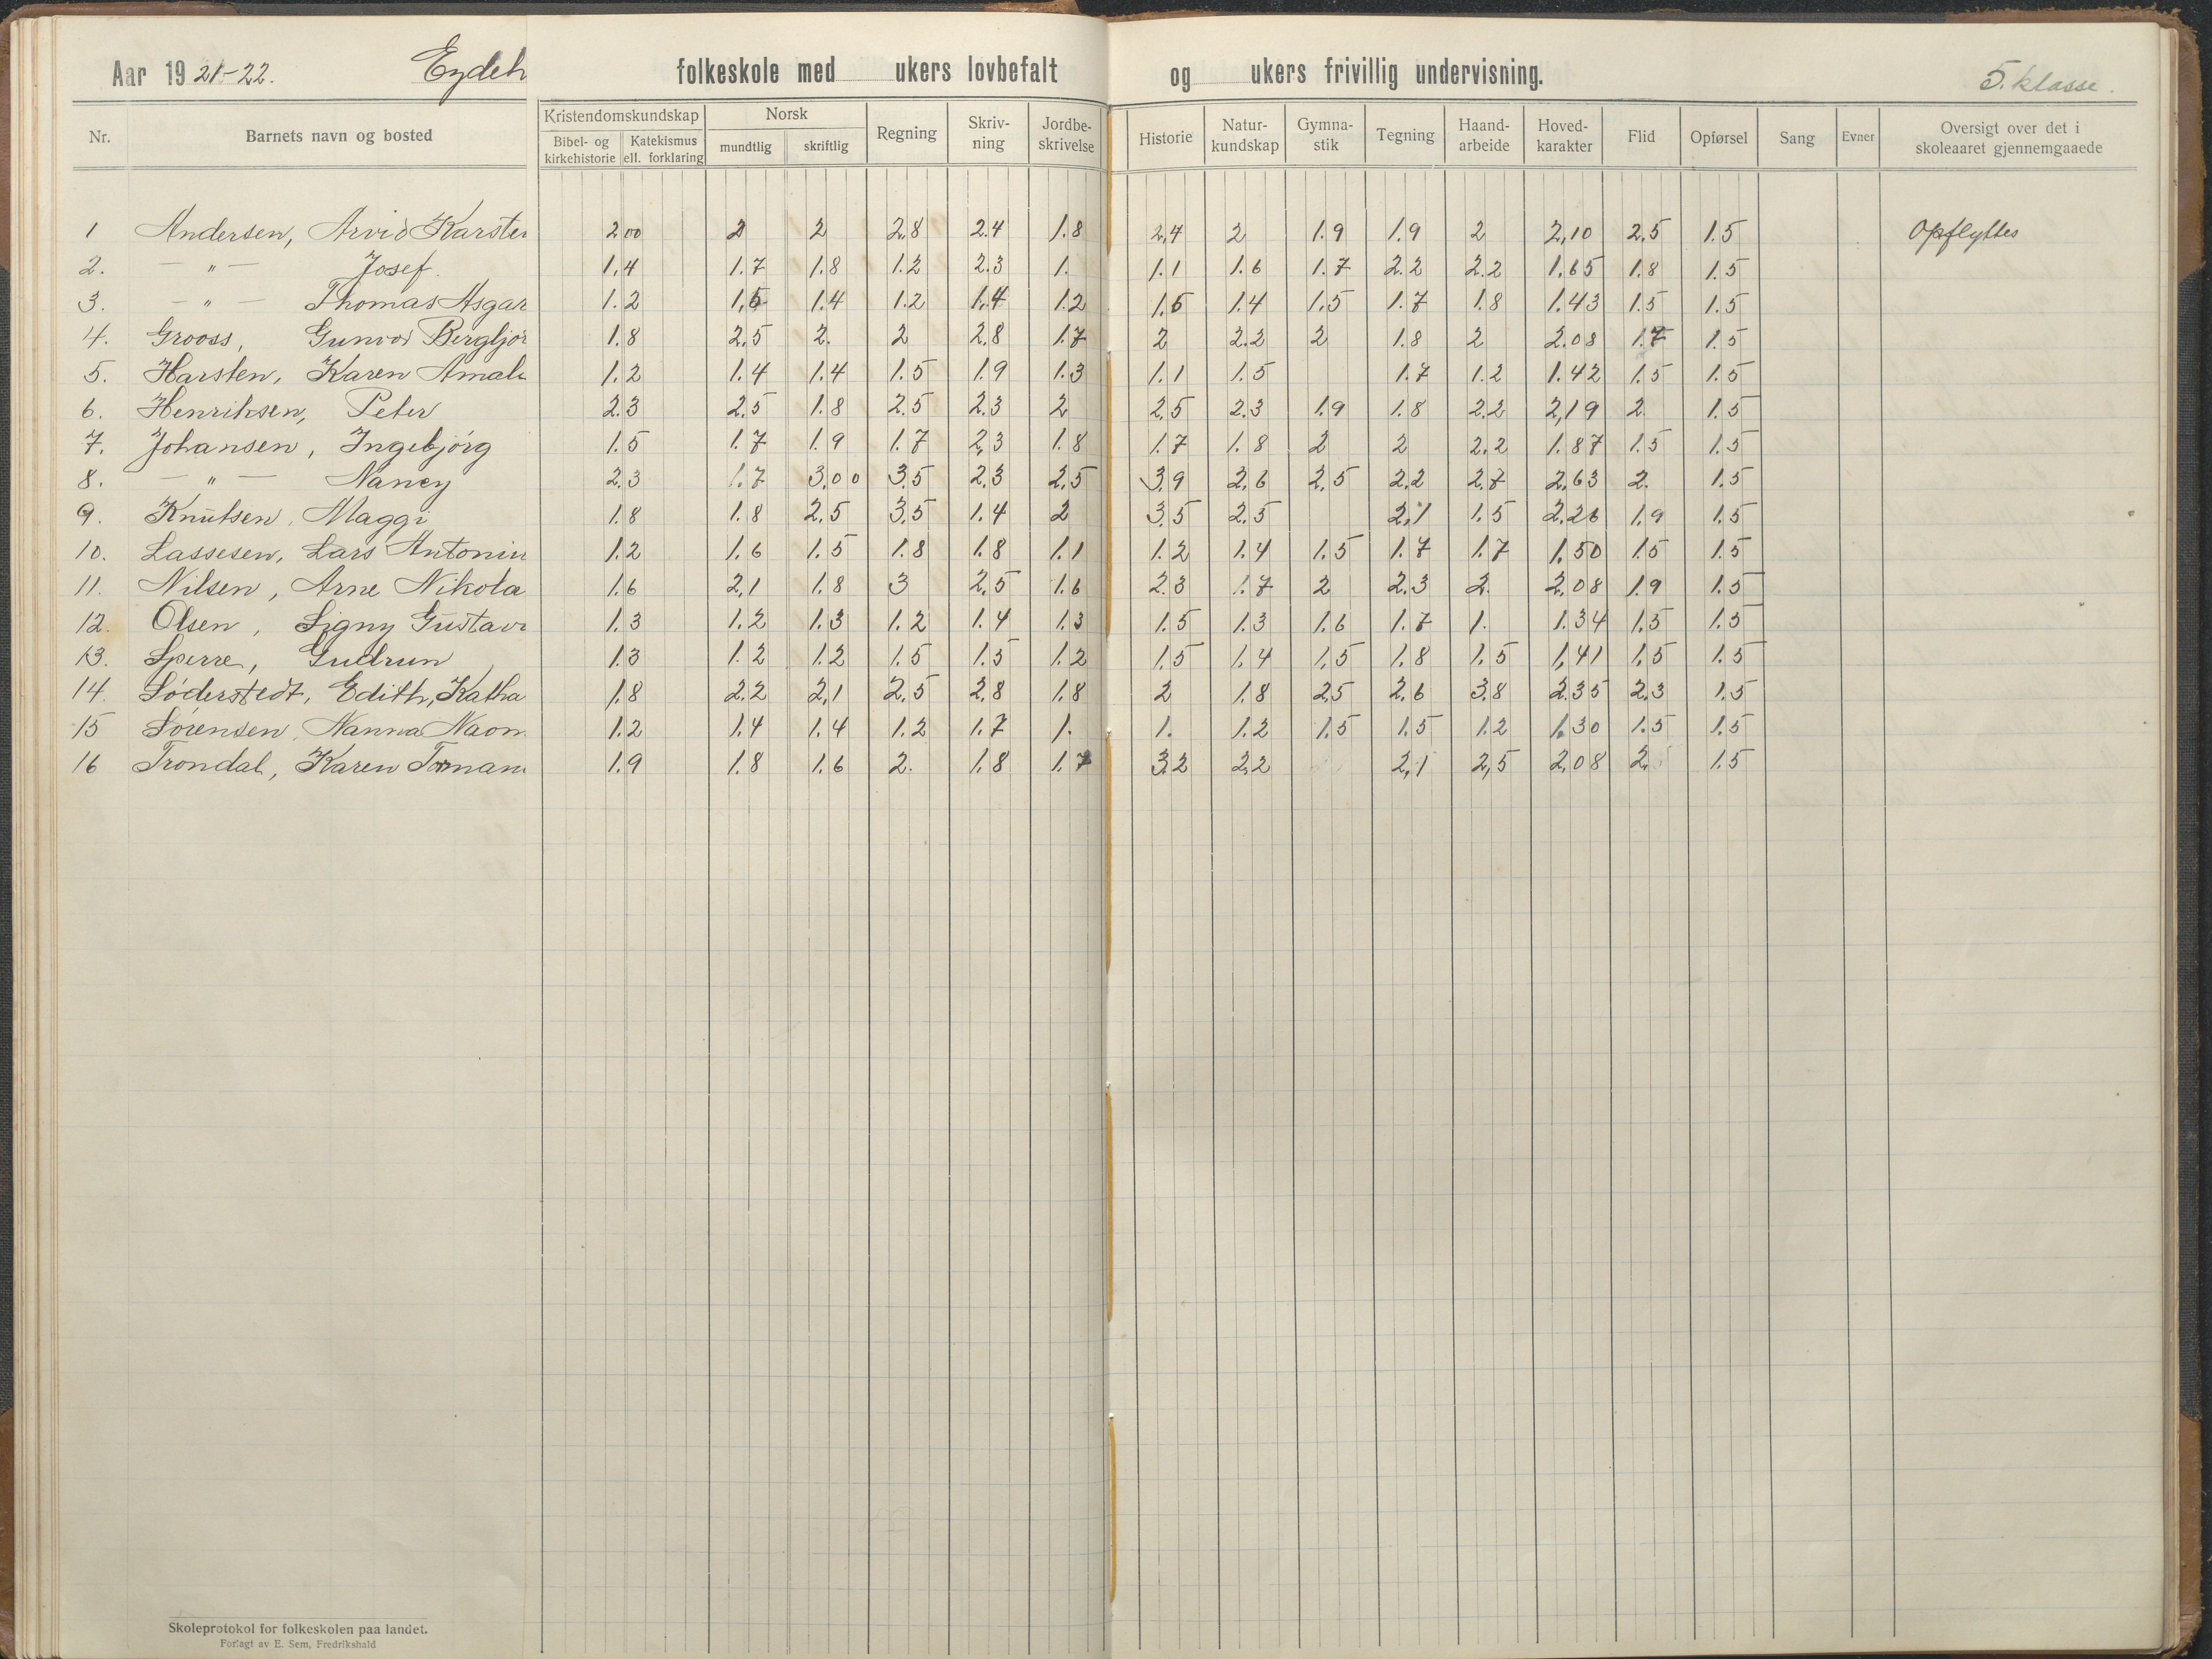 Aar 19 21-22. Eydeh folkeskole med ukers lovbefalt og ukers frivillig undervisning. 5. klasse.
Nr. Barnets navn og bosted Kristendomskundskap Bibel- og kirkehistorie Katekismus ell. forklaring Norsk mundtlig skriftlig Regning Skriv-ning Jordbe-skrivelse Historie Natur-kundskap Gymna-stik Tegning Haand-arbeide Hoved-karakter Flid Opførsel Sang Evner Oversigt over det i skoleaaret gjennemgaaede
1 Andersen, Arvid Karsten 2 00 2 2 2,8 2.4 1.8 2,4 2 1.9 1.9 2 2,10 2,5 1.5 Opflyttes
2. — " — Josef. 1,4 1.7 1.8 1.2 2.3 1. 1.1 1.6 1.7 2.2 2.2 1.65 1.8 1.5
3. — " — Thomas Asgar 1.2 1,5 1.4 1.2 1,4 1.2 1.5 1.4 1.5 1.7 1.8 1.43 1.5 1.5
4. Grooss, Gunvor Bergljor 1.8 2.5 2. 2 2.8 1.7 2 2.2 2 1.8 2 2.08 1.7 1.5
5. Harsten, Karen Amali 1.2 1.4 1.4 1.5 1.9 1.3 1.1 1.5 1.7 1.2 1.42 1.5 1.5
6. Henriksen, Peter 2.3 2,5 1.8 2.5 2.3 2 2,5 2.3 1.9 1.8 2.2 2,19 2 1.5
7. Johansen, Ingebjørg 1.5 1.7 1.9 1.7 2,3 1.8 1.7 1.8 2 2 2,2 1.87 1.5 1.5
8. — " — Nancy 2.3 1.7 3,00 3,5 2,3 2,5 3,9 2,6 2,5 2,2 2.7 2,63 2. 1.5
9. Knutsen, Maggi 1.8 1.8 2,5 3,5 1.4 2 3,5 2.5 2,1 1.5 2.26 1.9 1.5
10. Lassesen, Lars Antoniu 1.2 1.6 1.5 1.8 1.8 1.1 1.2 1.4 1.5 1.7 1.7 1.50 1.5 1.5
11. Nilsen, Arne Nikola 1.6 2,1 1.8 3 2,5 1.6 2.3 1.7 2 2.3 2. 2,08 1.9 1.5
12. Olsen, Signy Gustav 1.3 1.2 1.3 1.2 1.4 1.3 1.5 1.3 1.6 1.7 1. 1.34 1,5 1.5
13. Sperre, Gudrun 1.3 1.2 1.2 1.5 1.5 1.2 1.5 1,4 1,5 1.8 1.5 1,41 1,5 1.5
14. Söderstedt, Edith, Katha 1.8 2.2 2,1 2,5 2,8 1.8 2 1.8 2,5 2,6 3,8 2.35 2.3 1.5
15 Sørensen, Nanna Naom 1.2 1,4 1.4 1.2 1.7 1. 1. 1.2 1.5 1.5 1.2 1.30 1.5 1.5
16 Trondal, Karen Tormann 1.9 1.8 1.6 2. 1.8 1.7 3.2 2,2 2,1 2,5 2,08 2. 1.5
Skoleprotokol for folkeskolen paa landet.
Forlagt av E. Sem, Fredrikshald